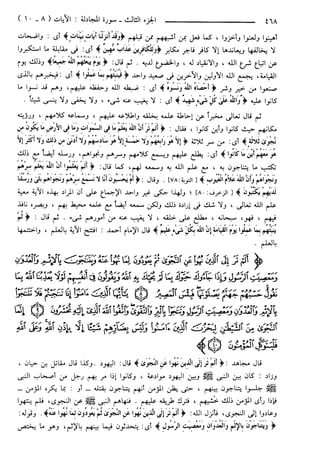 ٤٦٨ الجزء الثالث - سورة المجادلة : الآيات ( ٨ - ١٠ )
أهينوا ولعنوا وأخزوا ، كما فعل بمن أشبههم ممن قبلهم ﴿ وَقَدْ أَنزَلْنَا آيَاتٍ بَيِّنَاتٍ ﴾ أي : واضحات
لا يخالفها ويعاندها إلا كافر فاجر مكابر ﴿ وَلِلْكَافِرِينَ عَذَابٌ مُهِينٌ ﴾ أي : في مقابلة ما استكبروا
عن اتباع شرع الله ، والانقياد له ، والخضوع لديه . ثم قال : ﴿ يَوْمَ يَبْعَثُهُمُ اللَّهُ جَمِيعًا ﴾ وذلك يوم
القيامة ، يجمع الله الأولين والآخرين في صعيد واحد ﴿ فَيُنَبِّئُهُم بِمَا عَمِلُوا ﴾ أي : فيخبرهم بالذي
صنعوا من خير وشر ﴿ أَحْصَاهُ اللَّهُ وَنَسُوهُ ﴾ أي : ضبطه الله وحفظه عليهم ، وهم قد نسوا ما
كانوا عليه ﴿ وَاللَّهُ عَلَى كُلِّ شَيْءٍ شَهِيدٌ ﴾ أي : لا يغيب عنه شيء ، ولا يخفى ولا ينسى شيئاً .
ثم قال تعالى مخبراً عن إحاطة علمه بخلقه واطلاعه عليهم ، وسماعه كلامهم ، ورؤيته
مكانهم حيث كانوا وأين كانوا ، فقال : ﴿ أَلَمْ تَرَ أَنَّ اللَّهَ يَعْلَمُ مَا فِي السَّمَوَاتِ وَمَا فِي الْأَرْضِ مَا يَكُونُ مِن
نَّجْوَى ثَلَاثَةٍ ﴾ أي : من سر ثلاثة ﴿ إِلَّا هُوَ رَابِعُهُمْ وَلَا خَمْسَةٍ إِلَّا هُوَ سَادِسُهُمْ وَلَا أَدْنَى مِن ذَلِكَ وَلَا أَكْثَرَ إِلَّا
هُوَ مَعَهُمْ أَيْنَ مَا كَانُوا ﴾ أي : يطلع عليهم ويسمع كلامهم وسرهم ونجواهم ، ورسله أيضاً مع ذلك
تكتب ما يتناجون به ، مع علم الله به وسمعه لهم ، كما قال : ﴿ أَلَمْ يَعْلَمُوا أَنَّ اللَّهَ يَعْلَمُ سِرَّهُمْ
وَنَجْوَاهُمْ وَأَنَّ اللَّهَ عَلَّامُ الْغُيُوبِ ﴾ [ التوبة : ٧٨ ] . وقال : ﴿ أَمْ يَحْسَبُونَ أَنَّا لَا نَسْمَعُ سِرَّهُمْ وَنَجْوَاهُم بَلَى وَرُسُلُنَا
لَدَيْهِمْ يَكْتُبُونَ ﴾ [ الزخرف : ٨٠ ] ؛ ولهذا حكى غير واحد الإجماع على أن المراد بهذه الآية معية
علم الله تعالى ، ولا شك في إرادة ذلك ولكن سمعه أيضاً مع علمه محيط بهم ، وبصره نافذ
فيهم ، فهو ، سبحانه ، مطلع على خلقه ، لا يغيب عنه من أمورهم شيء . ثم قال : ﴿ ثُمَّ
يُنَبِّئُهُم بِمَا عَمِلُوا يَوْمَ الْقِيَامَةِ إِنَّ اللَّهَ بِكُلِّ شَيْءٍ عَلِيمٌ ﴾ قال الإمام أحمد : افتتح الآية بالعلم ، واختتمها
بالعلم .
قال مجاهد : ﴿ أَلَمْ تَرَ إِلَى الَّذِينَ نُهُوا عَنِ النَّجْوَى ﴾ قال : اليهود . وكذا قال مقاتل بن حيان ،
وزاد : كان بين النبي ﷺ وبين اليهود موادعة ، وكانوا إذا مر بهم رجل من أصحاب النبي
ﷺ جلسوا يتناجون بينهم ، حتى يظن المؤمن أنهم يتناجون بقتله - أو : بما يكره المؤمن -
فإذا رأى المؤمن ذلك خشيهم ، فترك طريقه عليهم . فنهاهم النبي ﷺ عن النجوى ، فلم ينتهوا
وعادوا إلى النجوى ، فأنزل الله : ﴿ أَلَمْ تَرَ إِلَى الَّذِينَ نُهُوا عَنِ النَّجْوَى ثُمَّ يَعُودُونَ لِمَا نُهُوا عَنْهُ ﴾ . وقوله :
﴿ وَيَتَنَاجَوْنَ بِالْإِثْمِ وَالْعُدْوَانِ وَمَعْصِيَتِ الرَّسُولِ ﴾ أي : يتحدثون فيما بينهم بالإثم ، وهو ما يختص